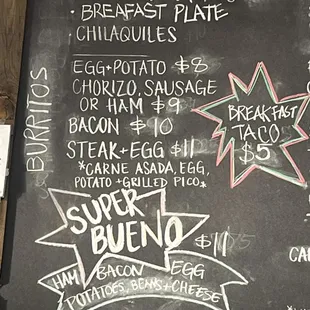 • BREAFAST PLATE
CHILAQUILES
•
BURRITOS
EGG+POTATO $8
CHORIZO, SAUSAGE
OR HAM $9
BACON $10
STEAK+EGG $11
*CARNE ASADA, EGG,
POTATO +GRILLED PICO*
BREAKFAST
TACO
$5
SUPER
BUENO $11
HAM BACON EGG
POTATOES, BEANS+CHEESE
CA